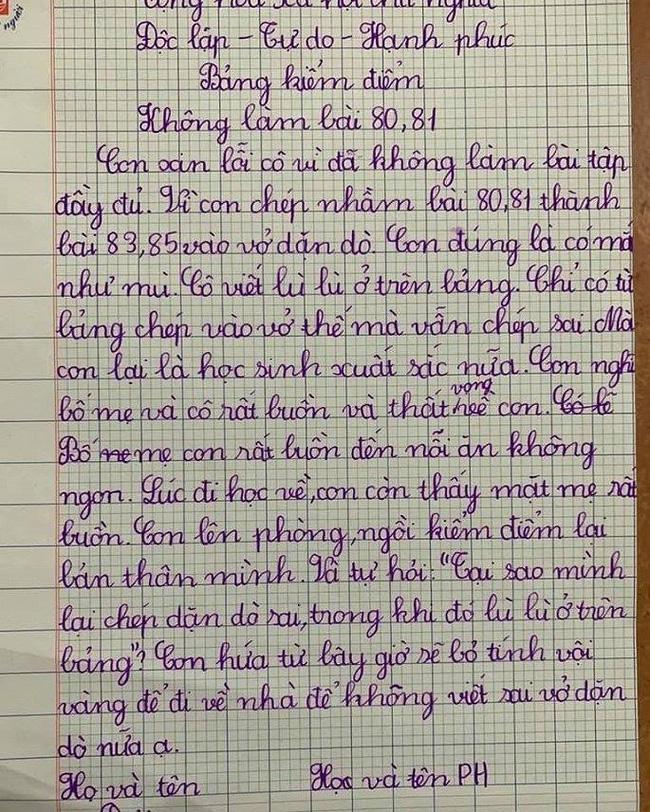 Cộng hòa xã hội chủ nghĩa
Độc lập - Tự do - Hạnh phúc
Bảng kiểm điểm
Không làm bài 80,81
Con xin lỗi cô vì đã không làm bài tập
đầy đủ. Vì con chép nhầm bài 80,81 thành
bài 83,85 vào vở dặn dò. Con đúng là có mắ
như mù. Cô viết lù lù ở trên bảng. Chỉ có từ
bảng chép vào vở thế mà vẫn chép sai. Mà
con lại là học sinh xuất sắc nữa. Con nghĩ
bố mẹ và cô rất buồn và thất vọng về con. Có lẽ
Bố mẹ mẹ con rất buồn đến nỗi ăn không
ngon. Lúc đi học về, con còn thấy mặt mẹ rất
buồn. Con lên phòng, ngồi kiểm điểm lại
bản thân mình. Và tự hỏi: "Tại sao mình
lại chép dặn dò sai, trong khi đó lù lù ở trên
bảng"? Con hứa từ bây giờ sẽ bỏ tính vội
vàng để đi về nhà để không viết sai vở dặn
dò nữa ạ.
Họ và tên Học và tên PH